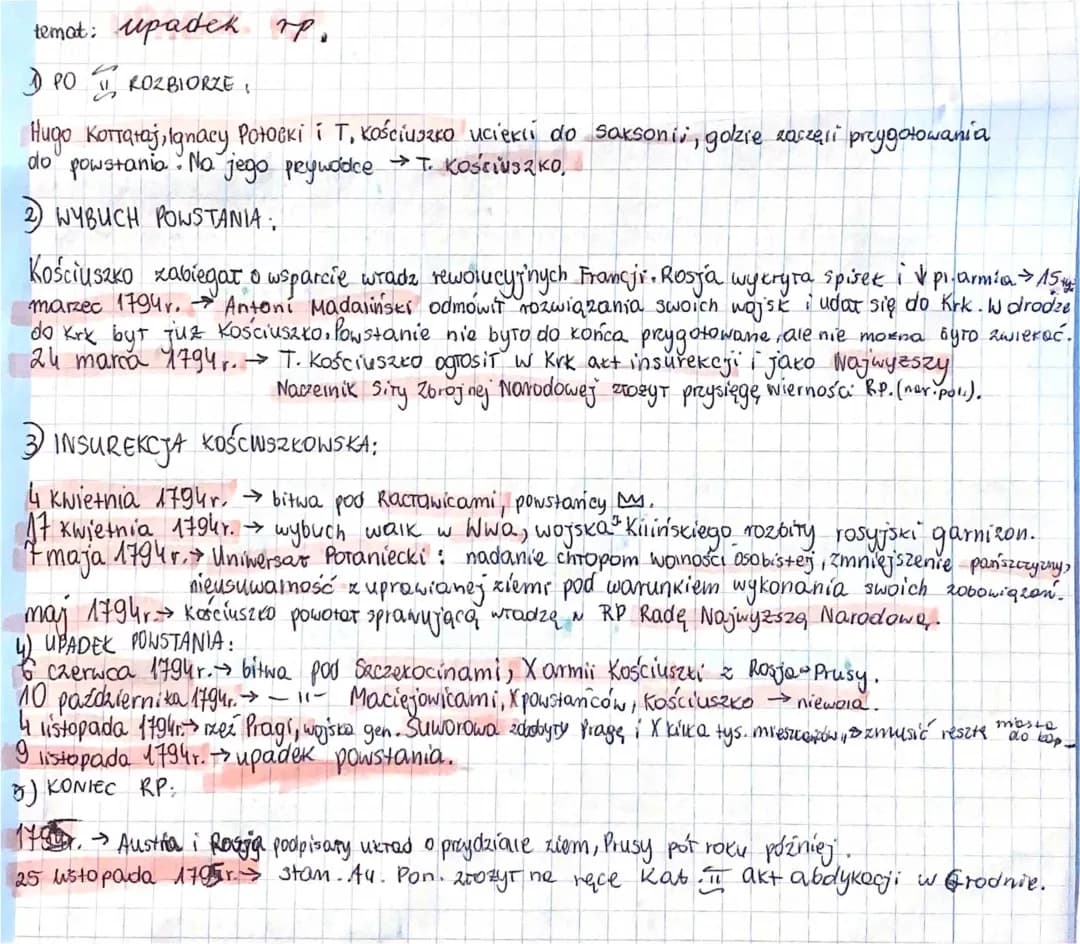 temat: upadek rp.
1) PO II ROZBIORZE.
Hugo Kołłątaj, Ignacy Potocki i T. Kościuszko uciekli do Saksonii, gdzie zaczęli przygotowania
do powstania. Na jego przywódcę → T. Kościuszko.
2) WYBUCH POWSTANIA:
Kościuszko zabiegał o wsparcie władz rewolucyjnych Francji. Rosja wykryła spisek i ↓ pl. armia → 15
marzec 1794r. → Antoni Madaliński odmówił rozwiązania swoich wojsk i udał się do Krk. W drodze
do Krk był już Kościuszko. Powstanie nie było do końca przygotowane, ale nie można było zwlekać.
24 marca 1794r. → T. Kościuszko ogłosił w Krk akt insurekcji i jako Najwyższy
Naczelnik Siły Zbrojnej Narodowej złożył przysięgę wierności RP. (nar. pol.).
3) INSUREKCJA KOŚCIUSZKOWSKA:
4 kwietnia 1794r. → bitwa pod Racławicami, powstańcy
17 kwietnia 1794r. → wybuch walk w Wwa, wojska Kilińskiego rozbiły rosyjski garnizon.
7 maja 1794r. → Uniwersał Połaniecki: nadanie chłopom wolności osobistej, zmniejszenie pańszczyzny,
nieusuwalność z uprawianej ziemi pod warunkiem wykonania swoich zobowiązań.
maj 1794r. → Kościuszko powołał sprawującą władzę w RP Radę Najwyższą Narodową.
4) UPADEK POWSTANIA:
6 czerwca 1794r. → bitwa pod Szczekocinami, X armii Kościuszki z Rosja Prusy.
10 października 1794r. → — 11 — Maciejowicami, X powstańców, Kościuszko → niewola.
4 listopada 1794r. → rzeź Pragi, wojska gen. Suworowa zdobyły Pragę i X kilka tys. mieszczan, zmusić resztę miasta do kap.
9 listopada 1794r. → upadek powstania.
5) KONIEC RP:
1795r. → Austria i Rosja podpisały układ o przydziale ziem, Prusy pół roku później.
25 listopada 1795r. → Stan. Au. Pon. złożył na ręce Kat. II akt abdykacji w Grodnie.